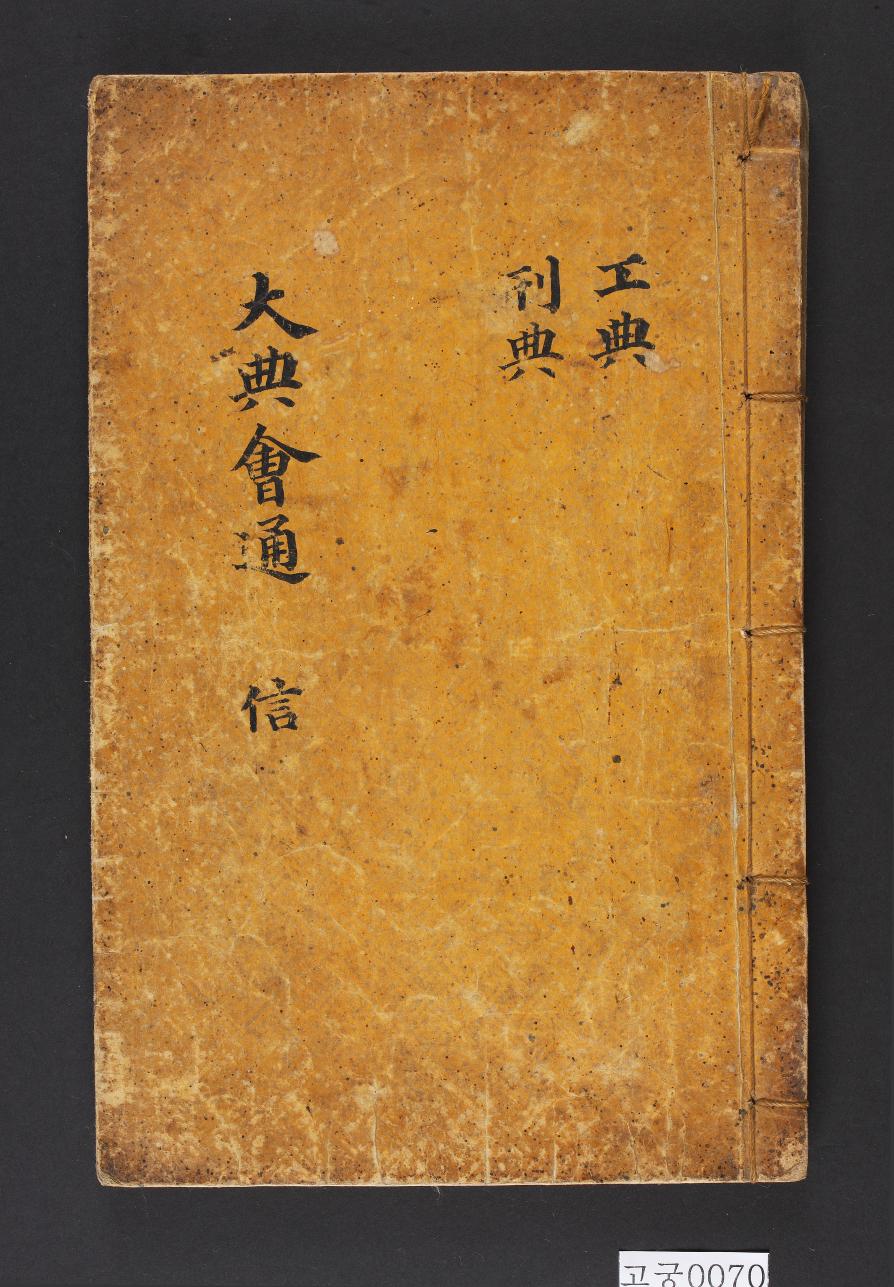 工典
刑典
大典會通 信
고궁0070